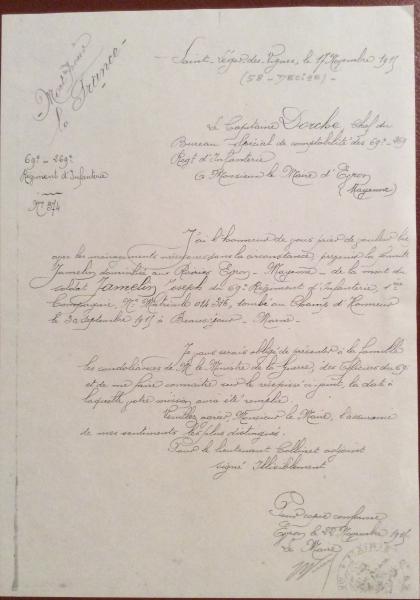 Mort pour
la France
Saint-Léger-des-Vignes, le 17 Novembre 1915
(58 - Decize) -
Le Capitaine Dorche, Chef du
Bureau spécial de comptabilité des 69e-269
Regt d'Infanterie
à Monsieur le Maire d'Evron
(Mayenne)
69e - 269e
Régiment d'Infanterie
No 874
J'ai l'honneur de vous prier de vouloir bien
avec les ménagements nécessaires dans la circonstance, prévenir la famille
Jamelin domiciliée aux Evron - Mayenne - de la mort du
soldat Jamelin Joseph du 69e Régiment d'Infanterie,
Compagnie, No Matricule tombé au Champ d'Honneur
le 30 Septembre 1915 à Beauséjour - Marne.
Je vous serais obligé de présenter à la famille
les condoléances de M. le Ministre de la Guerre, des Officiers du 69e
et de me faire connaître sur le récépissé ci-joint, la date à
laquelle votre mission aura été remplie.
Veuillez agréer, Monsieur le Maire, l'assurance
de mes sentiments les plus distingués.
Pour le lieutenant Colbinet adjoint
signé Illisiblement
Pour copie conforme
Evron le 22 Novembre 1915
Le Maire
MAIRIE